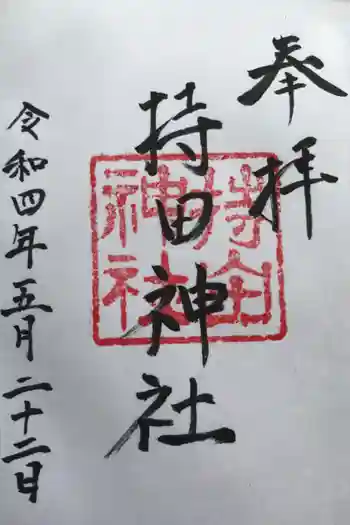 奉拝
持田神社
持田神社
令和四年五月二十二日